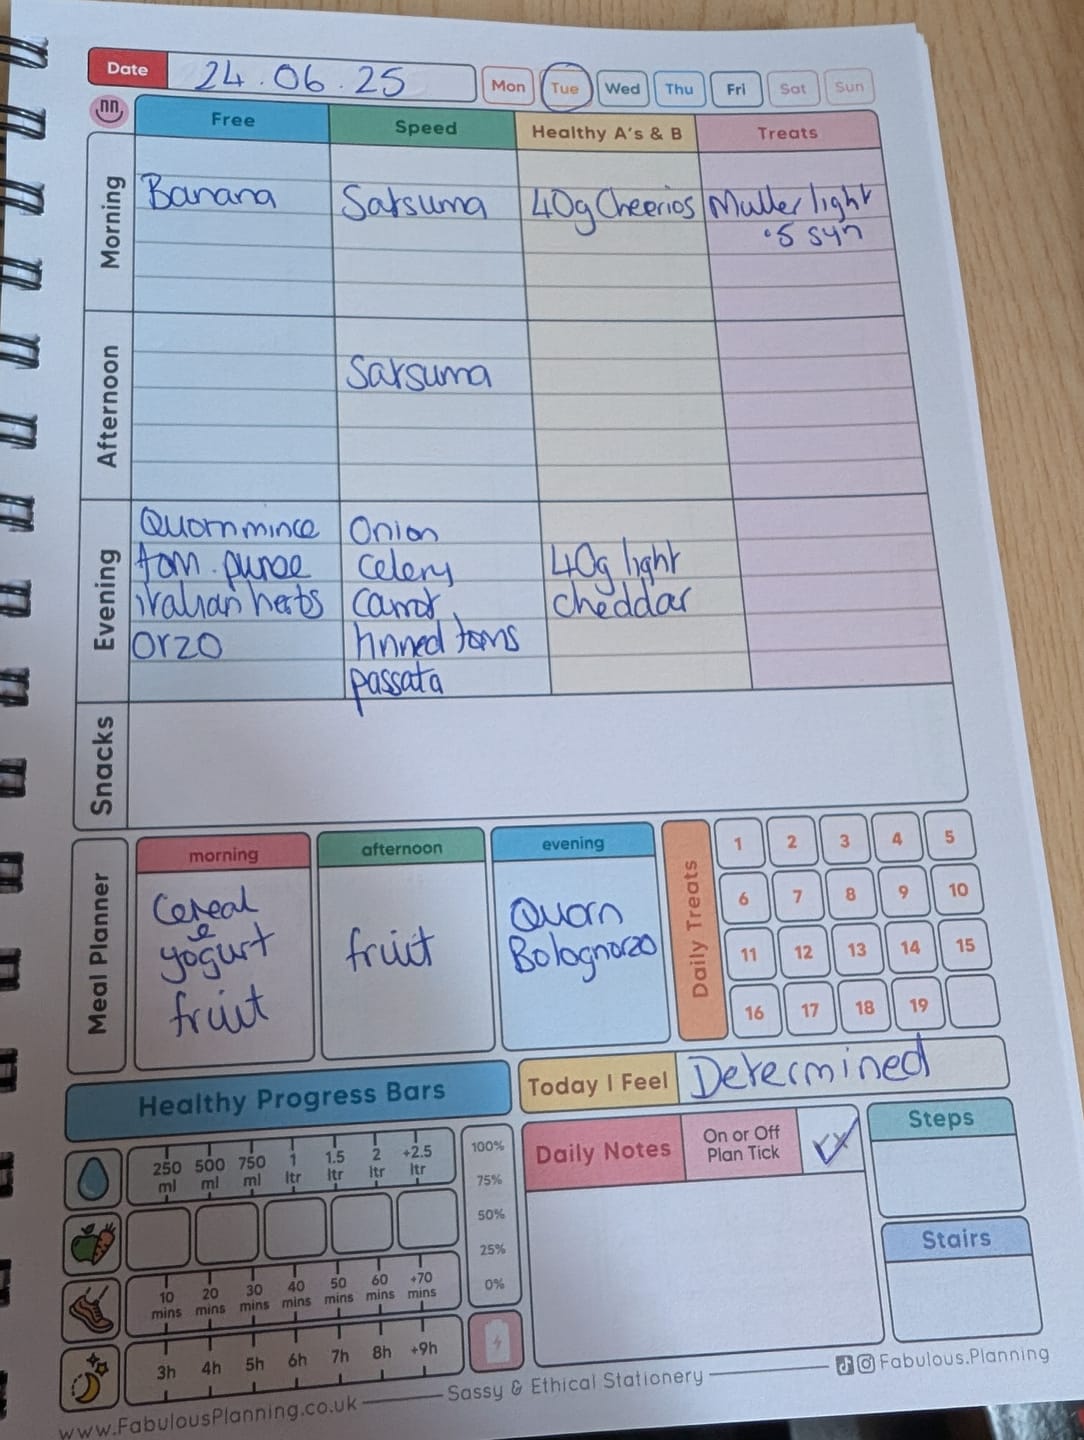 Date 24.06.25 Mon Tue Wed Thu Fri Sat Sun
Free Speed Healthy A's & B Treats
Morning
Banana Satsuma 40g Cheerios Muller light
.5 syn
Afternoon
Satsuma
Evening
Quorn mince Onion
tom. puree Celery 40g light
italian herbs Carrot cheddar
Orzo tinned toms
passata
Snacks
Meal Planner
morning afternoon evening
Cereal
&
yogurt
fruit
fruit
Quorn
Bolognorzo
Daily Treats
1 2 3 4 5
6 7 8 9 10
11 12 13 14 15
16 17 18 19
Healthy Progress Bars
Today I Feel Determined
250 ml 500 ml 750 ml 1 ltr 1.5 ltr 2 ltr +2.5 ltr
10 mins 20 mins 30 mins 40 mins 50 mins 60 mins +70 mins
3h 4h 5h 6h 7h 8h +9h
100%
75%
50%
25%
0%
Daily Notes
On or Off
Plan Tick
Steps
Stairs
www.FabulousPlanning.co.uk Sassy & Ethical Stationery Fabulous.Planning